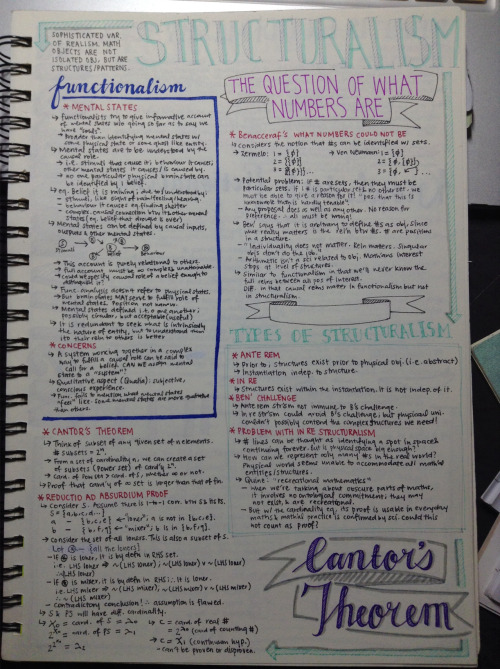 SOPHISTICATED VAR.
OF REALISM. MATH
OBJECTS ARE NOT
ISOLATED OBJ. BUT ARE
STRUCTURES/PATTERNS.
STRUCTURALISM
functionalism
* MENTAL STATES
→ Functionalists try to give informative account
of mental states w/o going so far as to say we
have "souls"
→ broader than identifying mental states w/
some physical state or some ghost like entity.
→ Mental states are to be understood by the
causal role.
→ i.e. stimuli that cause it; behaviour it causes;
other mental states it causes/is caused by.
→ no one particular physical brain state can
be identified by 1 belief.
→ eg. Belief it is raining; due to/understood by:
→ stimuli, like drips of rain/feeling/hearing.
→ behaviour it causes eg finding shelter
→ complex causal connection btw its other mental
states
→ Mental states can be defined by causal inputs,
outputs & other mental states.
Stimuli
Belief
Behaviour
→ This account is purely relational to others.
→ Full account must be so complex, unattainable.
→ could we specify causal role of a belief enough to
distinguish it?
→ Func. analysis doesn't refer to physical states.
→ But brain states MAY serve to fulfil role of
mental states. Position not known.
→ Mental states defined i.t.o one another;
possibly circular, but acceptable (useful)
→ It is redundant to seek what is intrinsically
the nature of entity, but to understand them
ito their role to others is better
* CONCERNS
→ A system working together in a complex
way to fulfil a causal role can still not
call for a belief. CAN we assign mental
state to a "system"?
→ Qualitative aspect (Qualia): subjective,
conscious experience.
→ Func. fails to mention what mental states
"feel" like. Some mental states are more qualitative
than others.
THE QUESTION OF WHAT
NUMBERS ARE
* Benacceraf's WHAT NUMBERS COULD NOT BE
→ considers the notion that #s can be identified w/ sets.
→ Zermelo: 1 = {∅}
2 = {{∅}}
3 = {{{∅}}}...
→ Von Neumann: 1 = {∅}
→ Potential problem: if # are sets, then they must be
particular sets. If 1 # is particular set & no other set - we
must be able to give a reason for it!
→ Any proposal does as well as any other. No reason for
preference ∴ all must be wrong!
→ Ben' says that it is arbitrary to define #s as obj. since
what really matters is the reln btw #s. # are positions
in a structure.
→ "Individuality does not matter. Reln matters. Singular
obj. don't do the job."
→ Arithmetic isn't a sci. related to obj. Mommens interest
stops at level of structure.
→ Similar to functionalism in that we'll never know the
full relns between as pos of interest.
→ Diff. in that causal relns matter in functionalism but not
in structuralism
TYPES OF STRUCTURALISM
* ANTE REM
→ Prior to; structures exist prior to physical obj. (i.e. abstract)
→ Instantiation indep. to structure.
* IN RE
→ Structures exist within the instantiation. It is not indep. of it.
* BEN' CHALLENGE
→ Ante rem strctm not immune to B's challenge.
→ In re strctm could avoid B's challenge, but physical uni.
couldn't possibly contend the complex structures we need!
* PROBLEM WITH IN RE STRUCTURALISM
→ # lines can be thought as identifying a spot in space &
continuing forever. But is physical space big enough?
→ How can we represent only many #s in the real world?
Physical world seems unable to accommodate all math
entities/structures.
→ Quine: "recreational mathematics"
→ When we're talking about obscure parts of maths,
it involves no ontological commitment; they may
not exist, & are recreational.
→ But w/ the cardinality eg, its proof is usable in everyday
maths & maths practice is confirmed by sci. could this
not count as proof?
* CANTOR'S THEOREM
→ Think of subset of any given set of n elements.
# subsets = 2ⁿ.
→ From a set of cardinality n, we can create a set
of subsets (power set) of card'y 2ⁿ.
→ Card. of PWR SN > card. of S, whether ∞ or not.
→ Proof that card'y of ∞ set is larger than that of fin.
* REDUCTIO AD ABSURDIUM PROOF
→ Consider S. Assume there is 1-1 corr. btw S & its PS.
S = {a,b,c,d...}
a - {b,c,e} ← "loner"; a is not in {b,c,e}.
b - {b,f,g} ← "mixer"; b is in {b,f,g}.
→ Consider the set of all loners. This is also a subset of S.
Let = {all the loners}
→ If is loner, it is by defn in RHS set.
i.e. LHS loner ⇒ ~(LHS loner)
→ If is mixer, it is by defn in RHS ∴ it is loner.
i.e. LHS mixer ⇒ ~(LHS mixer)
→ contradictory conclusion! ∴ assumption is flawed.
→ S & PS have diff. cardinality.
→ ℵ₀ = card. of S
→ C = card of real #
(card of counting #)
→ C = ℵ₁ (continuum hyp.)
→ can't be proven or disproven.
Cantor's
Theorem